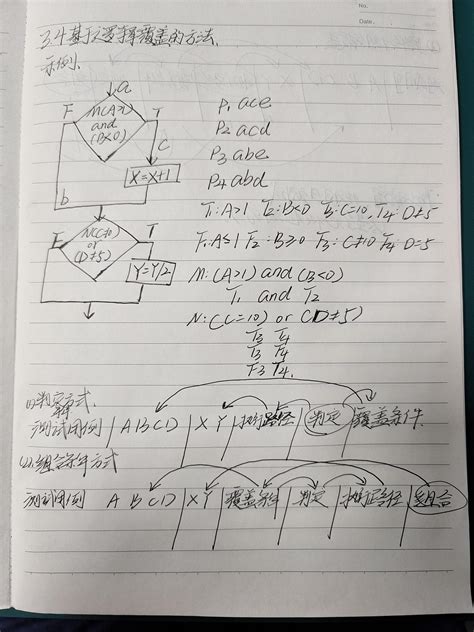 No.
Date
3.4 基于逻辑覆盖的方法.
示例.
a
F M(A>1) T
and
(B<0)
c
X=X+1
b
F N(C=10) T
or
(D≠5)
Y=Y/2
P₁ ace
P₂ acd
P₃ abe
P₄ abd
T₁: A>1 T₂: B<0 T₃: C=10, T₄: D≠5
F₁: A≤1 F₂: B≥0 F₃: C≠10 F₄: D=5
M: (A>1) and (B<0)
T₁ and T₂
N: (C=10) or (D≠5)
T₃ T₄
T₃ F₄
F₃ T₄.
测试用例 | A B C D | X Y | 执行路径 | 判定 | 覆盖条件.
(2).组合条件方式
测试用例 A B C D | X Y | 覆盖条件 | 判定 | 执行路径 | 组合